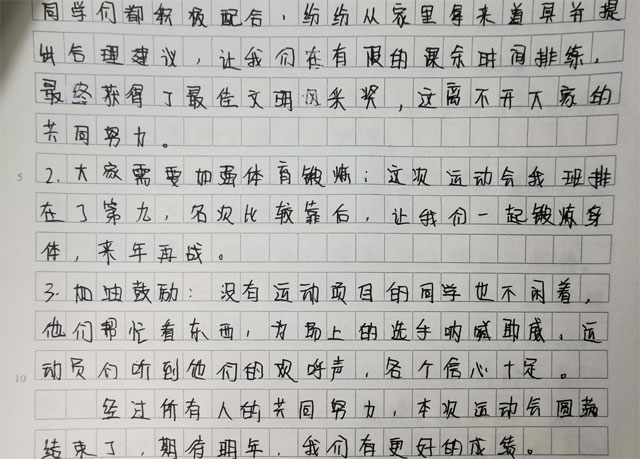 同学们都积极配合，纷纷从家里拿来道具并提
出合理建议，让我们在有限的课余时间排练，
最终获得了最佳文明风采奖，这离不开大家的
共同努力。
5 2.大家需要加强体育锻炼：这次运动会我班排
在了第九，名次比较靠后，让我们一起锻炼身
体，来年再战。
3.加油鼓励：没有运动项目的同学也不闲着，
他们帮忙看东西，为场上的选手呐喊助威，运
10 动员们听到他们的欢呼声，各个信心十足。
经过所有人的共同努力，本次运动会圆满
结束了，期待明年，我们有更好的成绩。